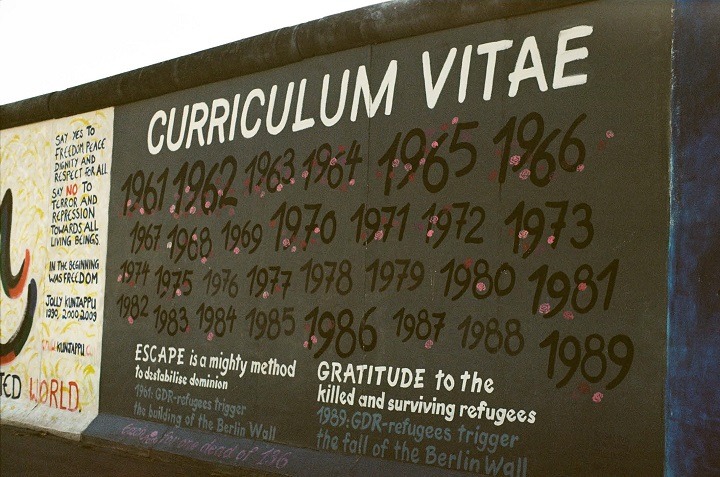 SAY YES TO
FREEDOM PEACE
DIGNITY AND
RESPECT FOR ALL
SAY NO TO
TERROR AND
REPRESSION
TOWARDS ALL
LIVING BEINGS.
IN THE BEGINNING
WAS FREEDOM
JOLLY KUNJAPPU
1990, 2000, 2009
KUNJAPPU.
TED WORLD.
CURRICULUM VITAE
1961 1962 1963 1964 1965 1966
1967 1968 1969 1970 1971 1972 1973
1974 1975 1976 1977 1978 1979 1980 1981
1982 1983 1984 1985 1986 1987 1988 1989
ESCAPE is a mighty method
to destabilise dominion
1961: GDR-refugees trigger
the building of the Berlin Wall
GRATITUDE to the
killed and surviving refugees
1989: GDR-refugees trigger
the fall of the Berlin Wall
for one dead of 136